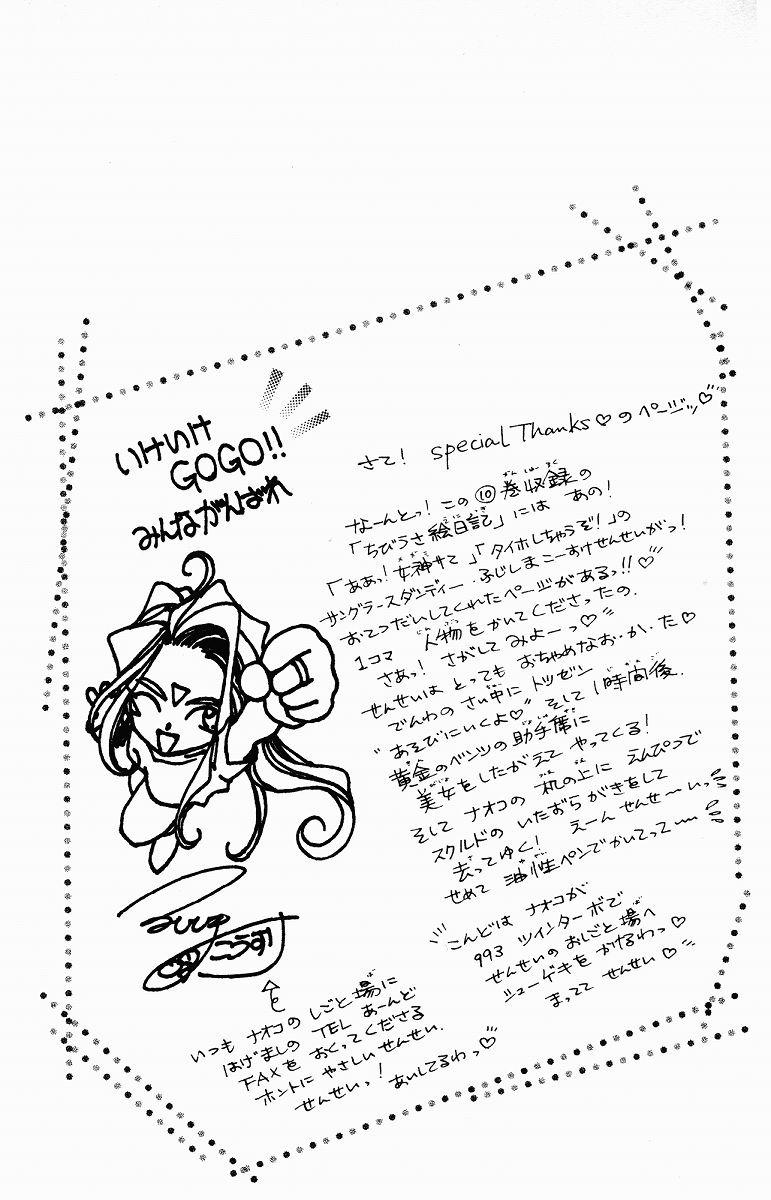 いけいけ
GOGO!!
みんながんばれ
さて! special Thanks♡のページッ♡
なーんとっ!この⑩巻収録の
「ちびうさ絵日記」には あの!
「ああっ!女神サマ」「タイホしちゃうぞ!」の
サングラースダンディー・ふじしまこーすけせんせいがっ!
おてつだいしてくれたページがあるっ!!♡
1コマ 人物をかいてくださったの.
さあっ! さがしてみよーっ♡
せんせいは とっても おちゃめなお・か・た♡
でんわの さい中に トツゼン
"あそびにいくよ♡" そして1時間後.
黄金のベンツの助手席に
美女をしたがえて やってくる!
そして ナオコの 机の上に えんぴつで
スクルドの いたずらがきをして
去ってゆく! えーん せんせ〜いっ
せめて 油性ペンでかいてって〜
こんどは ナオコが
993 ツインターボで
せんせいのおしごと場へ
シューゲキをかけるわっ♡
まってて せんせい♡
こうすけ
いつも ナオコの しごと場に
はげましの TEL あーんど
FAXを おくってくださる
ホントに やさしい せんせい.
せんせいっ! あいしてるわっ♡